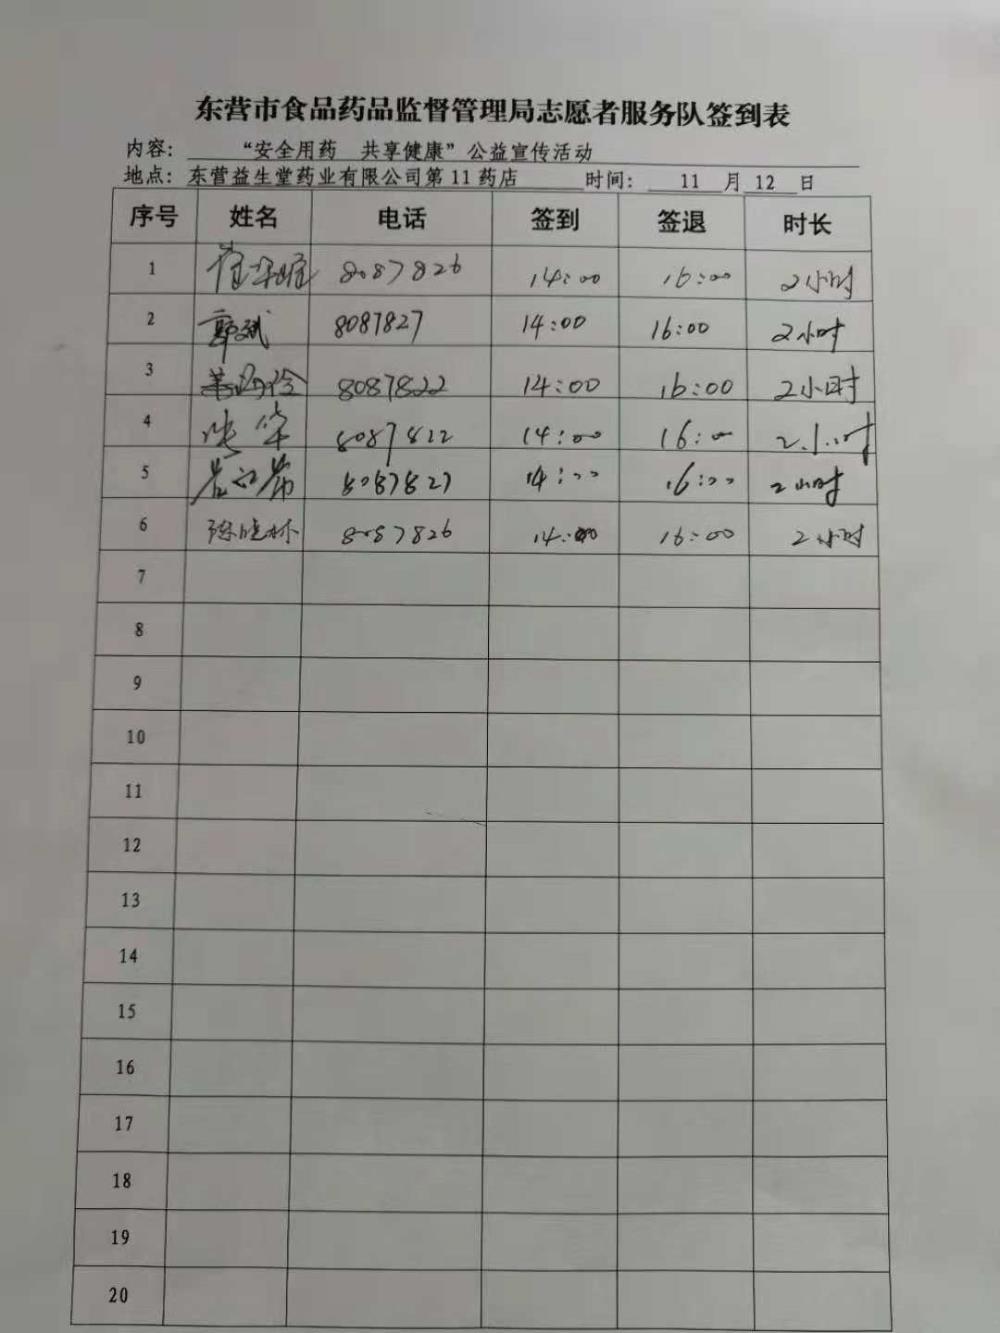 东营市食品药品监督管理局志愿者服务队签到表
内容： “安全用药 共享健康”公益宣传活动
地点：东营益生堂药业有限公司第11药店 时间： 11 月 12 日
序号 姓名 电话 签到 签退 时长
1 8087826 14:00 16:00 2小时
2 郭斌 8087827 14:00 16:00 2小时
3 8087822 14:00 16:00 2小时
4 张华 8087822 14:00 16:00 2小时
5 8087827 14:00 16:00 2小时
6 陈晓林 8087826 14:00 16:00 2小时
7
8
9
10
11
12
13
14
15
16
17
18
19
20